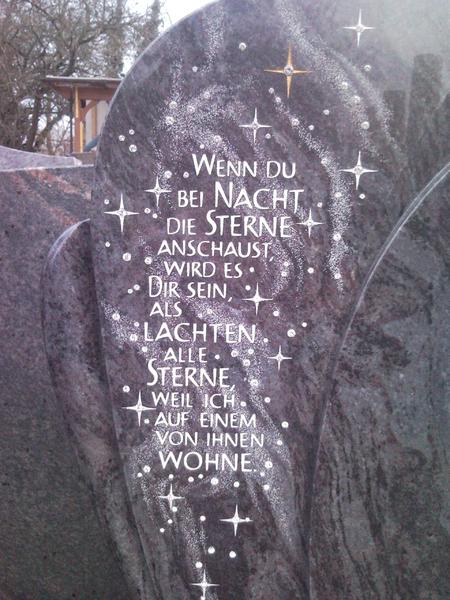 WENN DU
BEI NACHT
DIE STERNE
ANSCHAUST,
WIRD ES
DIR SEIN,
ALS
LACHTEN
ALLE
STERNE,
WEIL ICH
AUF EINEM
VON IHNEN
WOHNE.